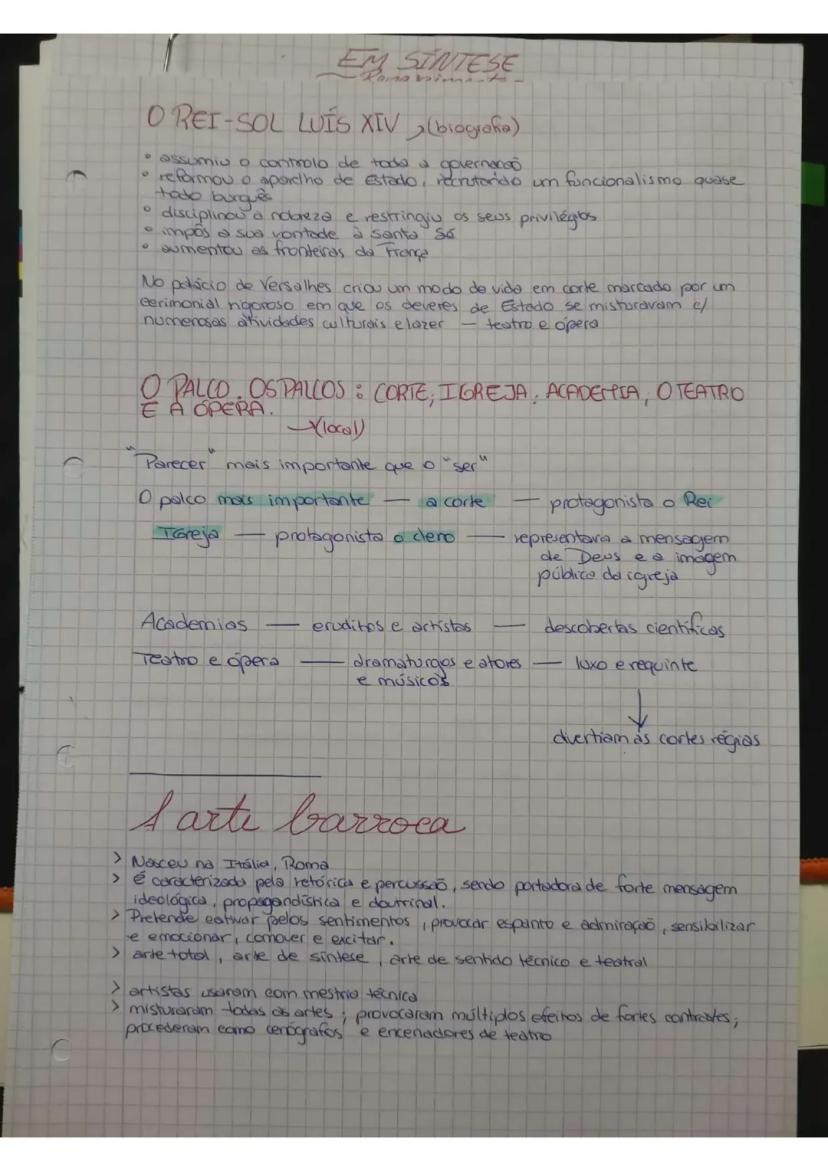 EM SÍNTESE
O REI-SOL LUÍS XIV (biografia)
• assumiu o controlo de toda a governação
• reformou o aparelho de Estado, recrutando um funcionalismo quase
todo burguês
• disciplinou a nobreza e restringiu os seus privilégios
• impôs a sua vontade à Santa Sé
• aumentou as fronteiras da França
No palácio de Versalhes criou um modo de vida em corte marcado por um
cerimonial rigoroso em que os deveres de Estado se misturavam c/
numerosas atividades culturais e lazer — teatro e ópera
O PALCO, OS PALCOS: CORTE, IGREJA, ACADEMIA, O TEATRO
E A ÓPERA.
(local)
"Parecer" mais importante que o "ser"
O palco mais importante — a corte — protagonista o Rei
Igreja — protagonista o clero — representava a mensagem
de Deus e a imagem
pública da igreja
Academias — eruditos e artistas — descobertas científicas
Teatro e ópera — dramaturgos e atores — luxo e requinte
e músicos
↓
divertiam as cortes régias
A arte barroca
> Nasceu na Itália, Roma
> é caracterizada pela retórica e percussão, sendo portadora de forte mensagem
ideológica, propagandística e doutrinal.
> Pretende cativar pelos sentimentos, provocar espanto e admiração, sensibilizar
e emocionar, comover e excitar.
> arte total, arte de síntese, arte de sentido técnico e teatral
> artistas usaram com mestria técnica
> misturaram todas as artes; provocaram múltiplos efeitos de fortes contrastes;
procederam como cenógrafos e encenadores de teatro